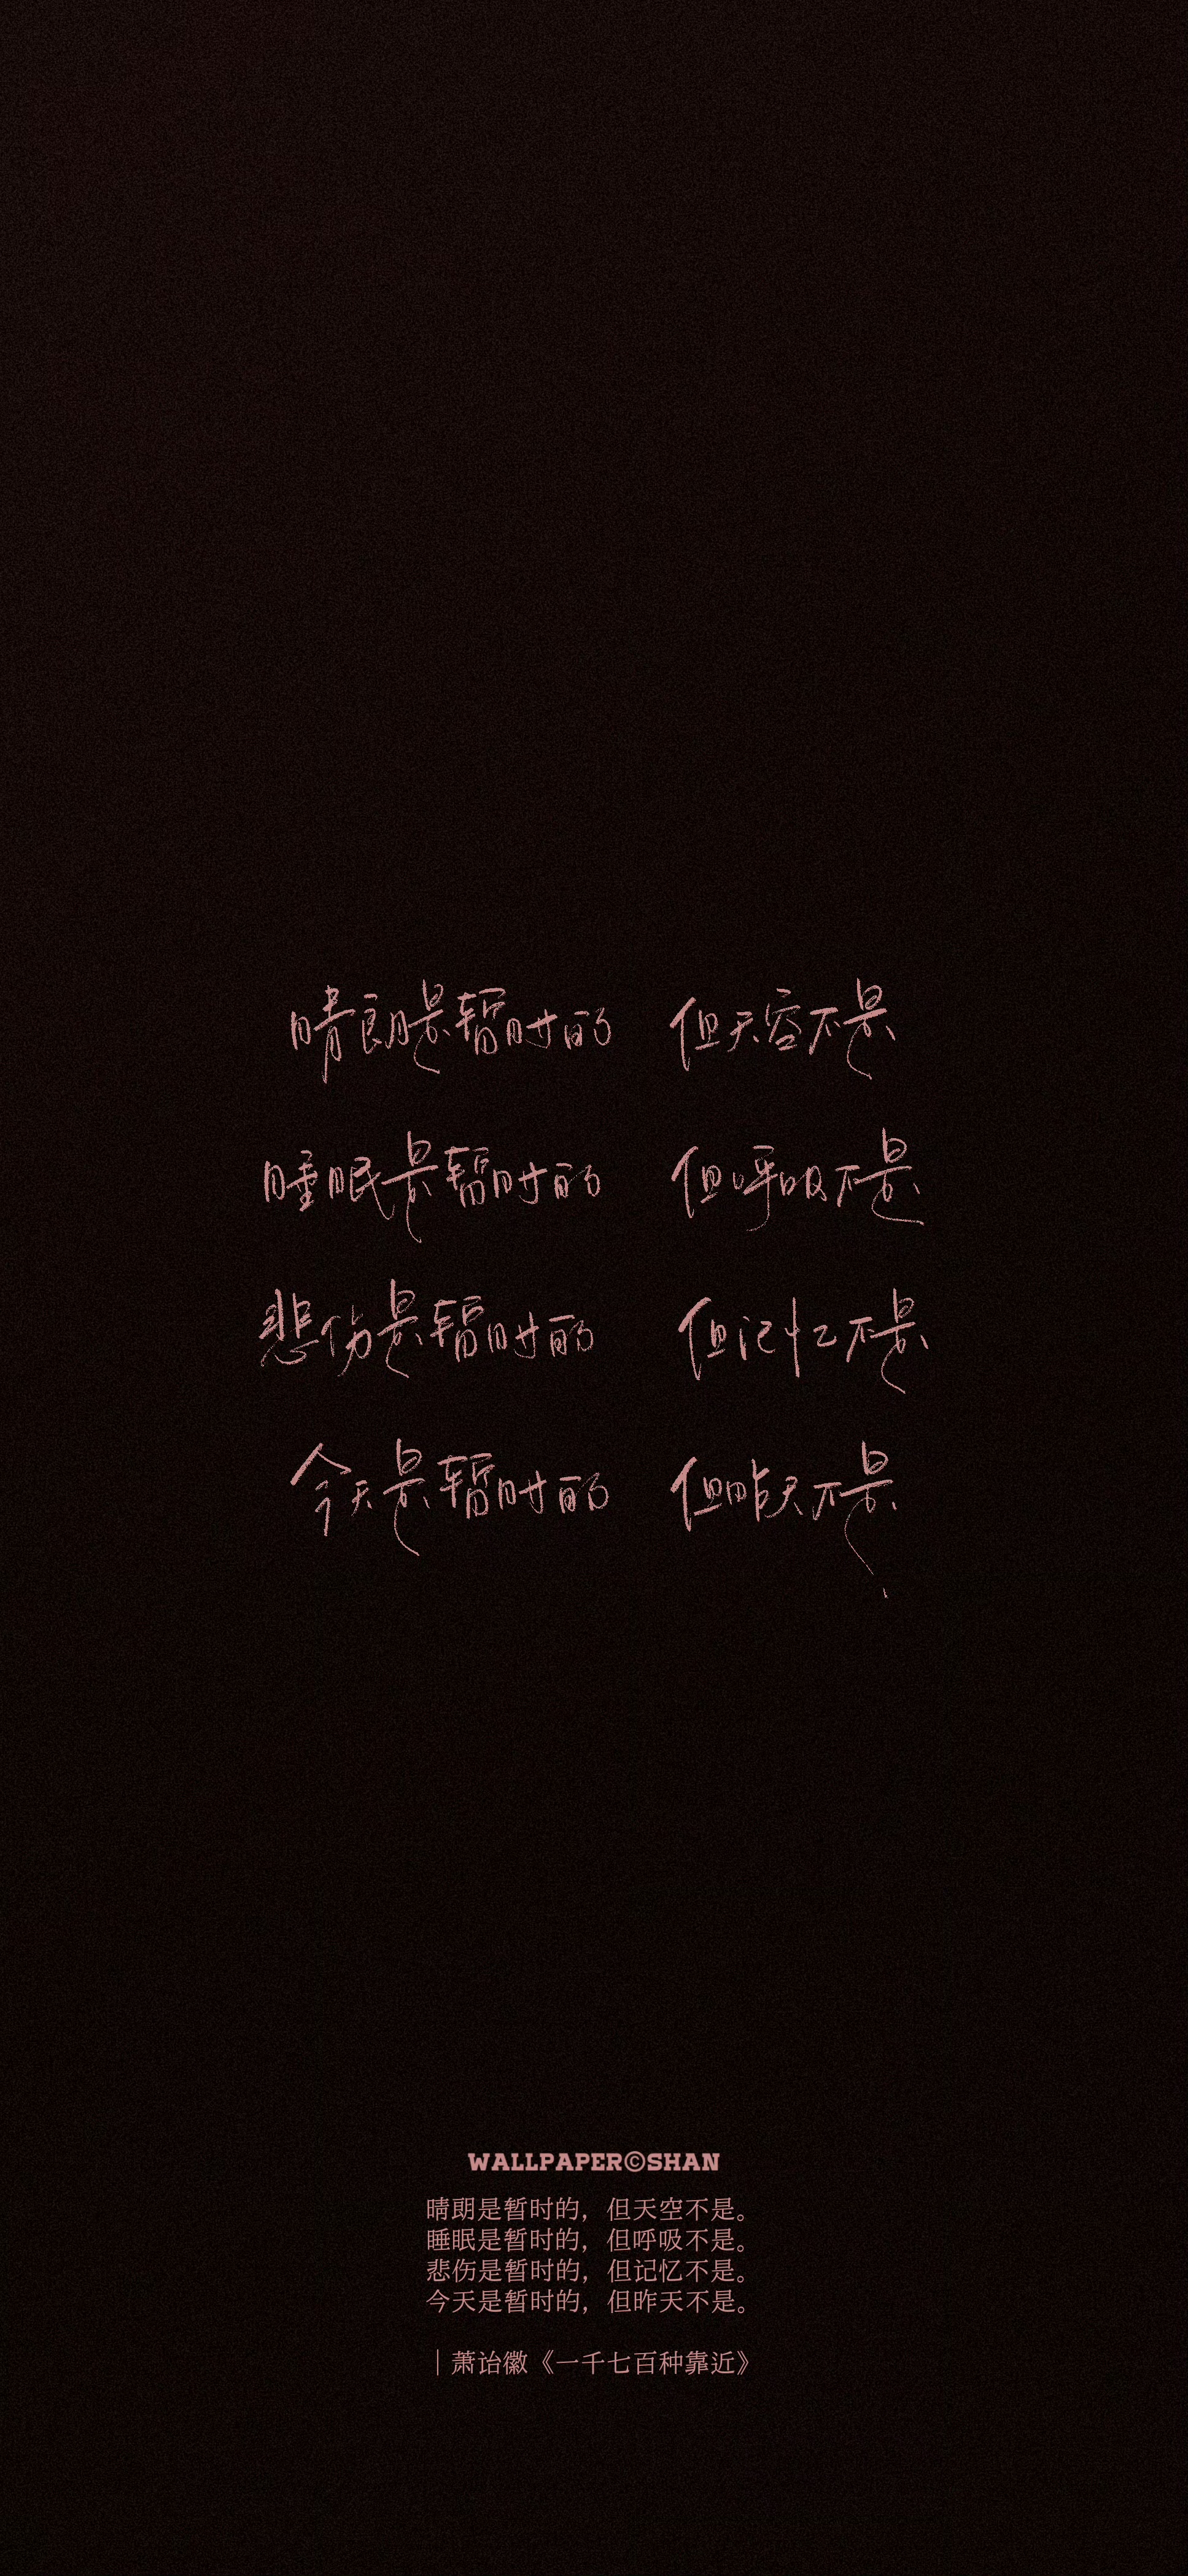 晴朗是暂时的 但天空不是
睡眠是暂时的 但呼吸不是
悲伤是暂时的 但记忆不是
今天是暂时的 但昨天不是
WALLPAPER©SHAN
晴朗是暂时的，但天空不是。
睡眠是暂时的，但呼吸不是。
悲伤是暂时的，但记忆不是。
今天是暂时的，但昨天不是。
｜萧诒徽《一千七百种靠近》